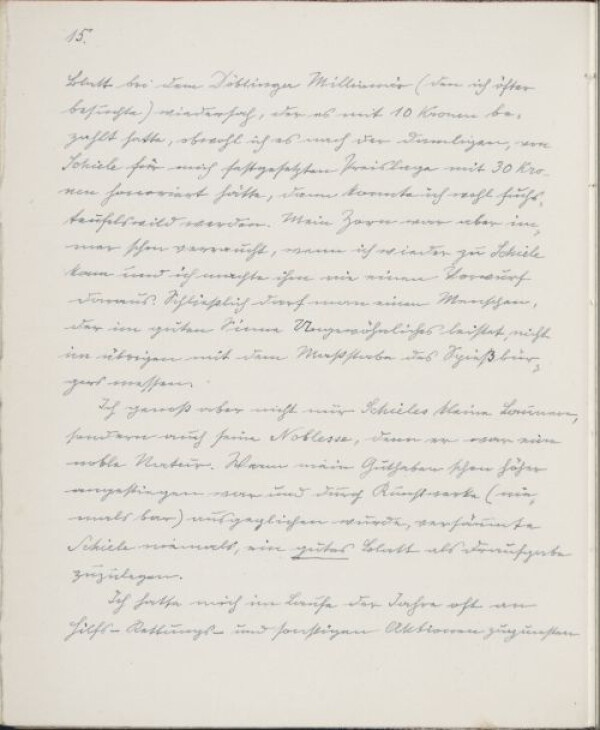 15.
Blatt bei dem Döblinger Millionär (den ich öfter
besuchte) wiedersah, der es mit 10 Kronen be-
zahlt hatte, obwohl ich es nach der damaligen, von
Schiele für mich festgesetzten Preislage mit 30 Kro-
nen honoriert hätte, dann konnte ich wohl fuchs-
teufelswild werden. Mein Zorn war aber im-
mer schon verraucht, wenn ich wieder zu Schiele
kam und ich machte ihm nie einen Vorwurf
daraus. Schließlich darf man einen Menschen,
der im guten Sinne Ungewöhnliches leistet, nicht
im übrigen mit dem Maßstabe des Spießbür-
gers messen.
Ich genoß aber nicht nur Schieles kleine Launen,
sondern auch seine Noblesse, denn er war eine
noble Natur. Wenn mein Guthaben schon höher
angestiegen war und durch Kunstwerke (nie-
mals bar) ausgeglichen wurde, versäumte
Schiele niemals, ein gutes Blatt als Draufgabe
zuzulegen.
Ich hatte mich im Laufe der Jahre oft an
Hilfs- Rettungs- und sonstigen Aktionen zugunsten